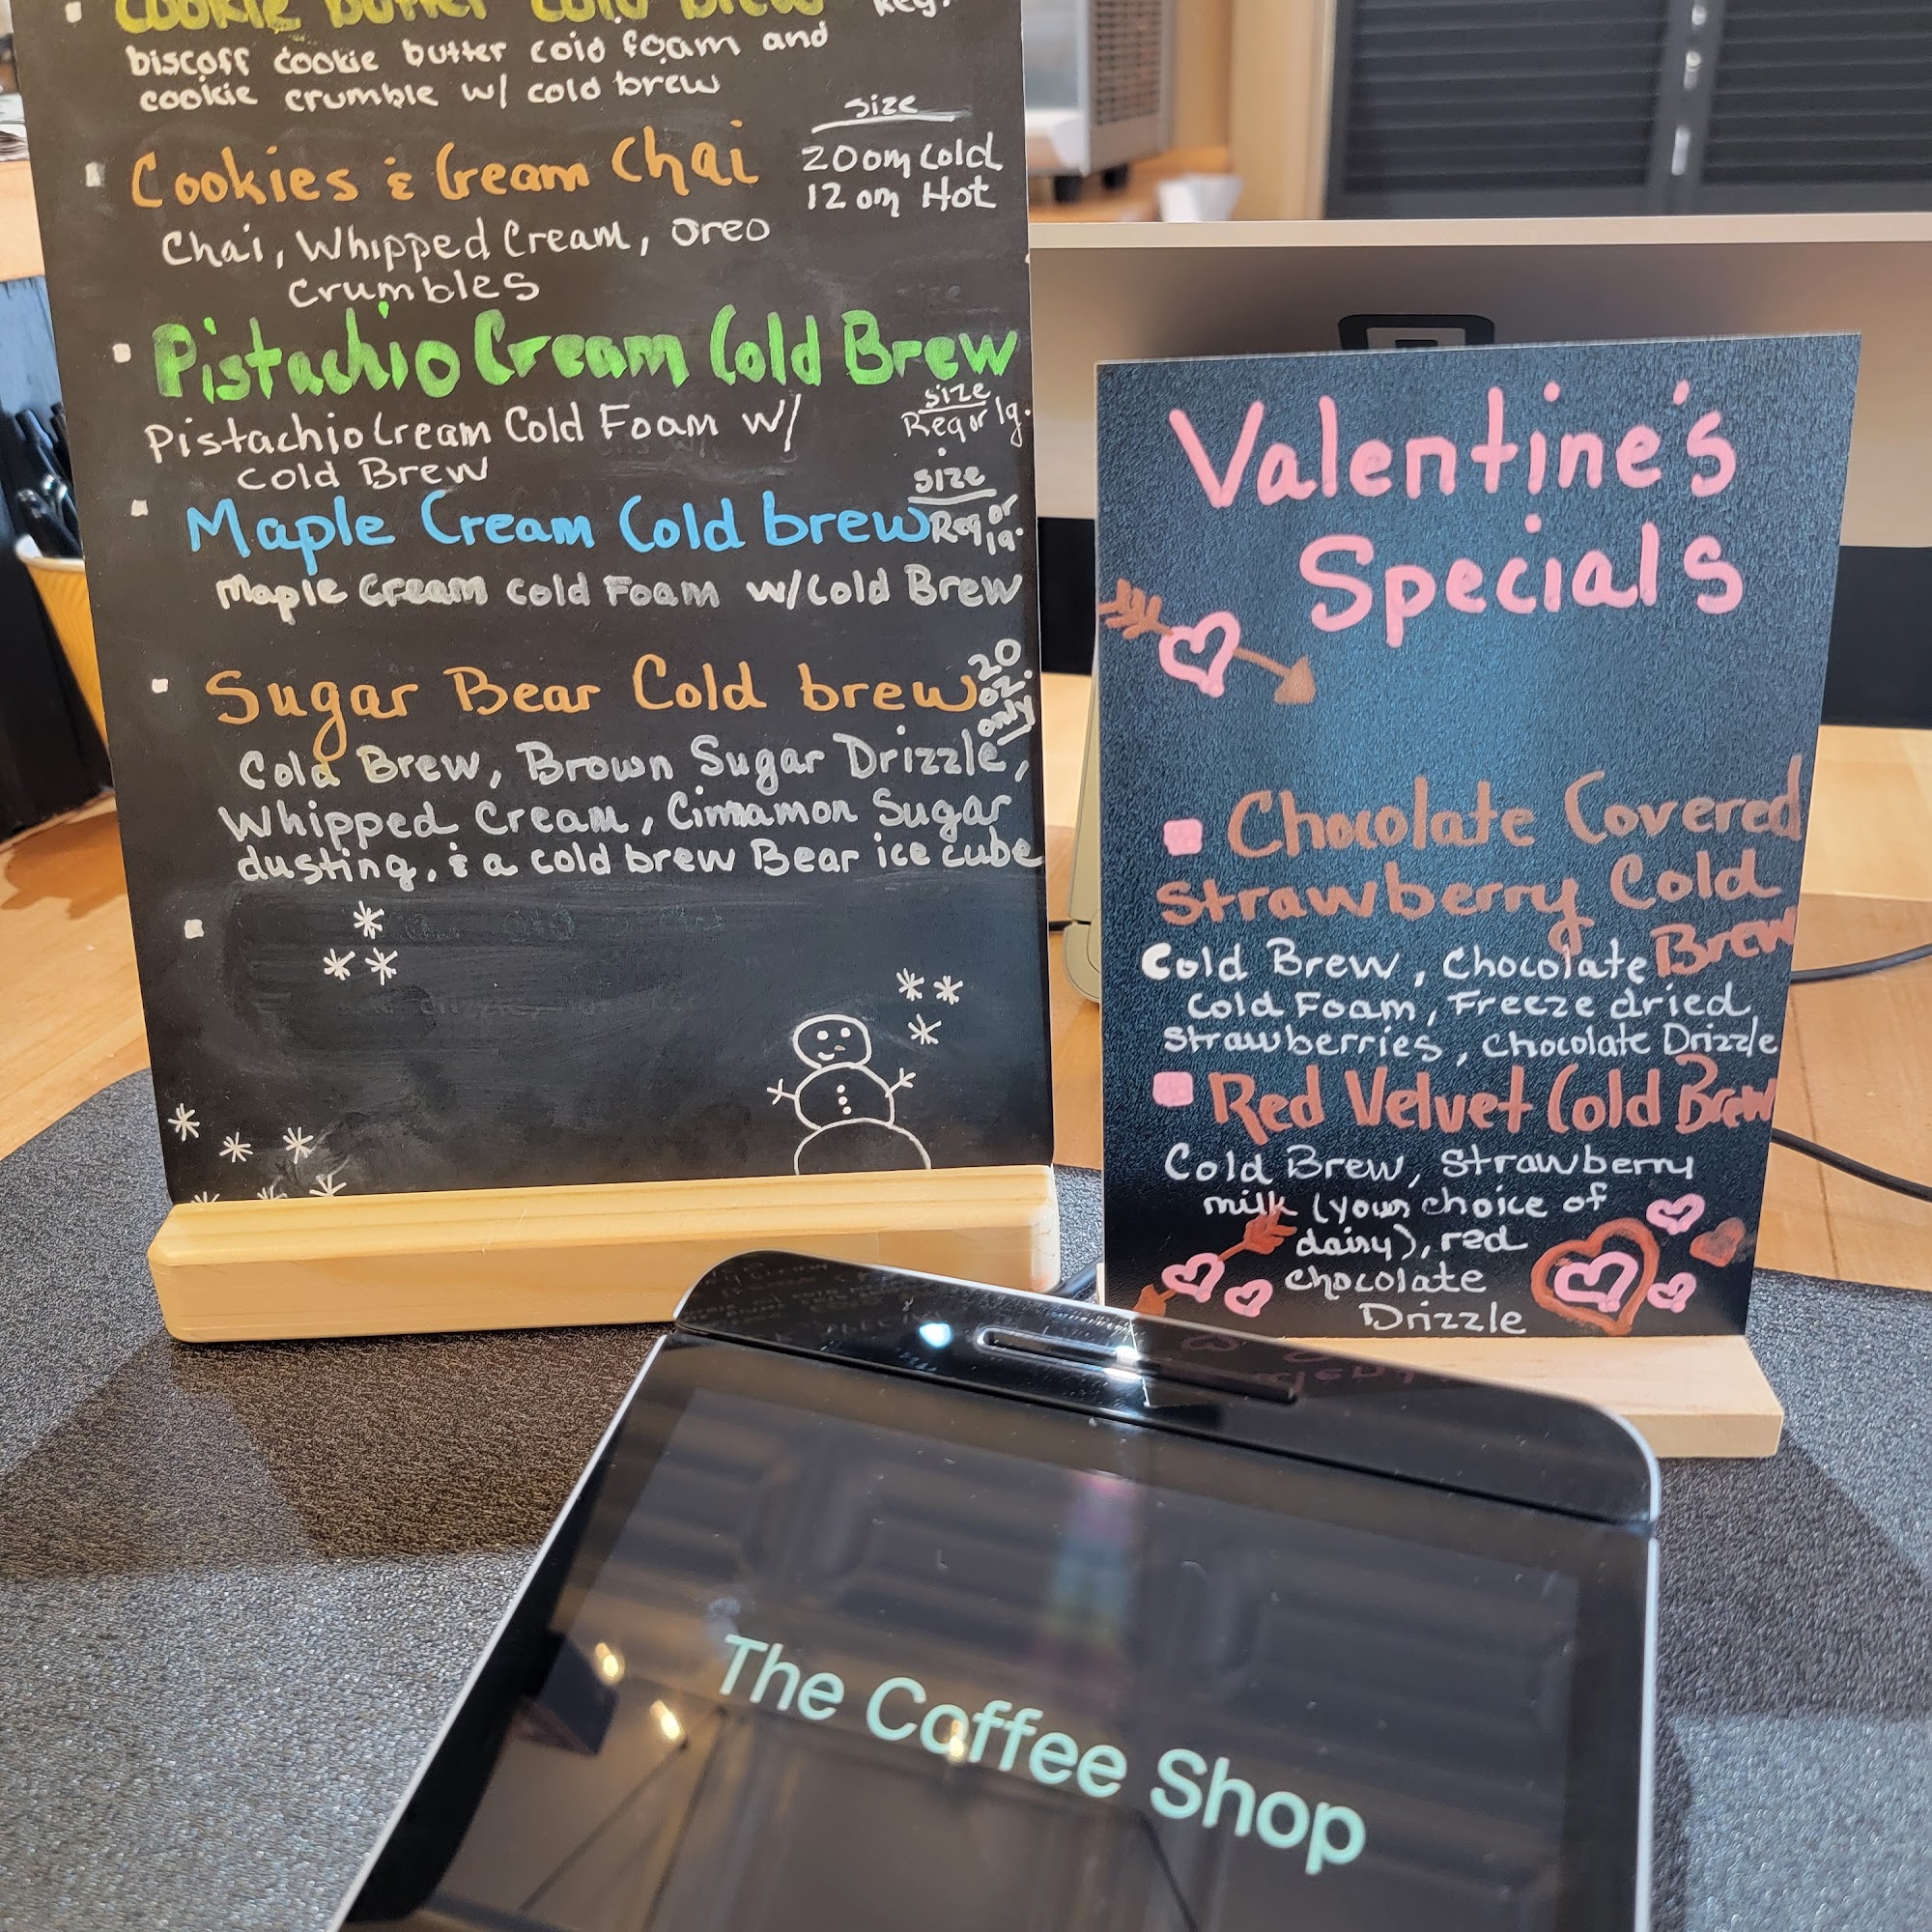 Cookie Butter Cold Brew Reg.
biscoff cookie butter cold foam and
cookie crumble w/ cold brew
Cookies & Cream Chai
size
20om Cold
12 om Hot
Chai, Whipped Cream, oreo
crumbles
Pistachio Cream Cold Brew
size
Reg or lg.
Pistachio Cream Cold Foam w/
Cold Brew
Maple Cream Cold brew
size
Reg or
lg.
Maple Cream cold Foam w/Cold Brew
Sugar Bear Cold brew
20
oz.
only
Cold Brew, Brown Sugar Drizzle,
Whipped Cream, Cinnamon Sugar
dusting, & a cold brew Bear ice cube
Valentine's
Specials
Chocolate Covered
Strawberry Cold
Brew
Cold Brew, Chocolate
Cold Foam, Freeze dried
Strawberries, Chocolate Drizzle
Red Velvet Cold Brew
Cold Brew, Strawberry
milk (your choice of
dairy), red
chocolate
Drizzle
The Coffee Shop